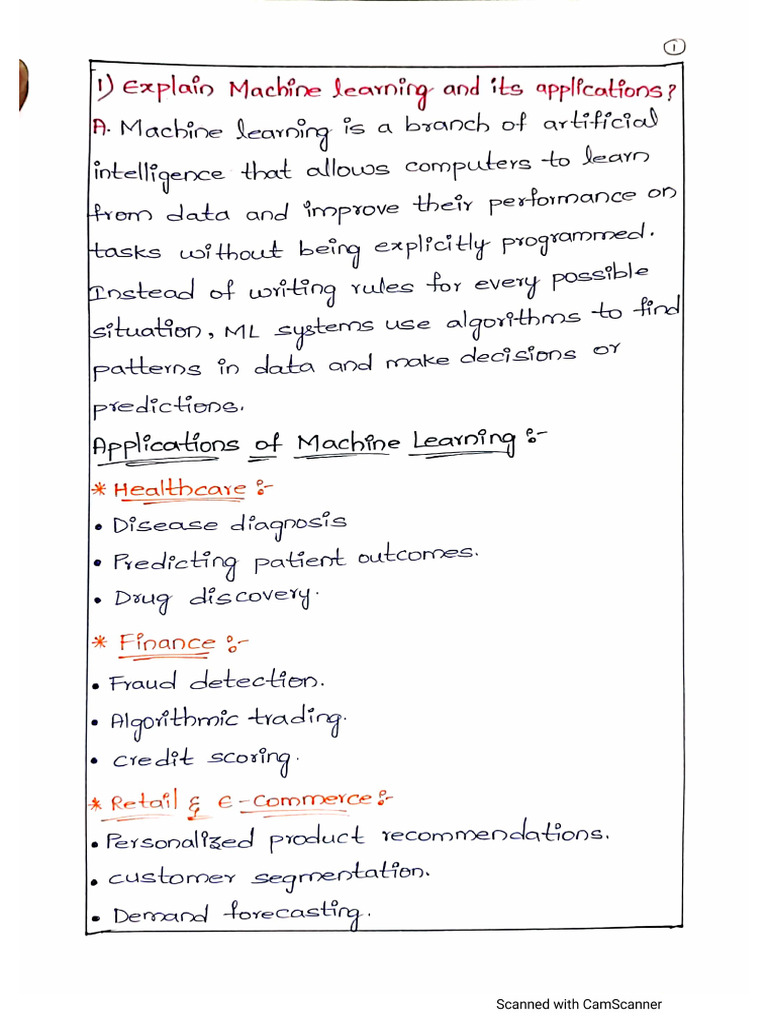 1
1) Explain Machine learning and its applications?
A. Machine learning is a branch of artificial
intelligence that allows computers to learn
from data and improve their performance on
tasks without being explicitly programmed.
Instead of writing rules for every possible
situation, ML systems use algorithms to find
patterns in data and make decisions or
predictions.
Applications of Machine Learning :-
* Healthcare :-
• Disease diagnosis
• Predicting patient outcomes.
• Drug discovery.
* Finance :-
• Fraud detection.
• Algorithmic trading.
• credit scoring.
* Retail & E-Commerce :-
• Personalized product recommendations.
• customer segmentation.
• Demand forecasting.
Scanned with CamScanner